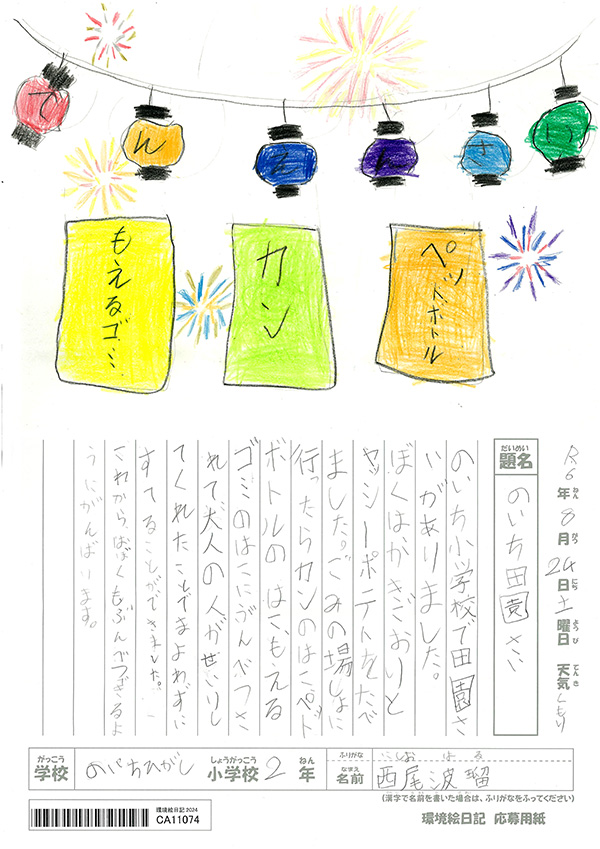 でんえんさい
もえるゴミ
カン
ペットボトル
R6年8月24日土曜日 天気くもり
ねん がつ にち ようび てんき
だいめい
題名
のいち田園さい
のいち小学校で田園さ
いがありました。
ぼくはかきごおりと
ヤッシーポテトをたべ
ました。ごみの場しょに
行ったらカンのはこペット
ボトルの はこ、もえる
ゴミのはこにぶんべつさ
れて大人の人がせいりし
てくれたことでまよわずに
すてることができました。
これから、ぼくもぶんべつできるよ
うにがんばります。
がっこう しょうがっこう ねん
学校 のいちひがし 小学校 2 年
ふりがな にしお はる
なまえ
名前 西尾波瑠
(漢字で名前を書いた場合は、ふりがなをふってください)
環境絵日記2024
CA11074
環境絵日記 応募用紙